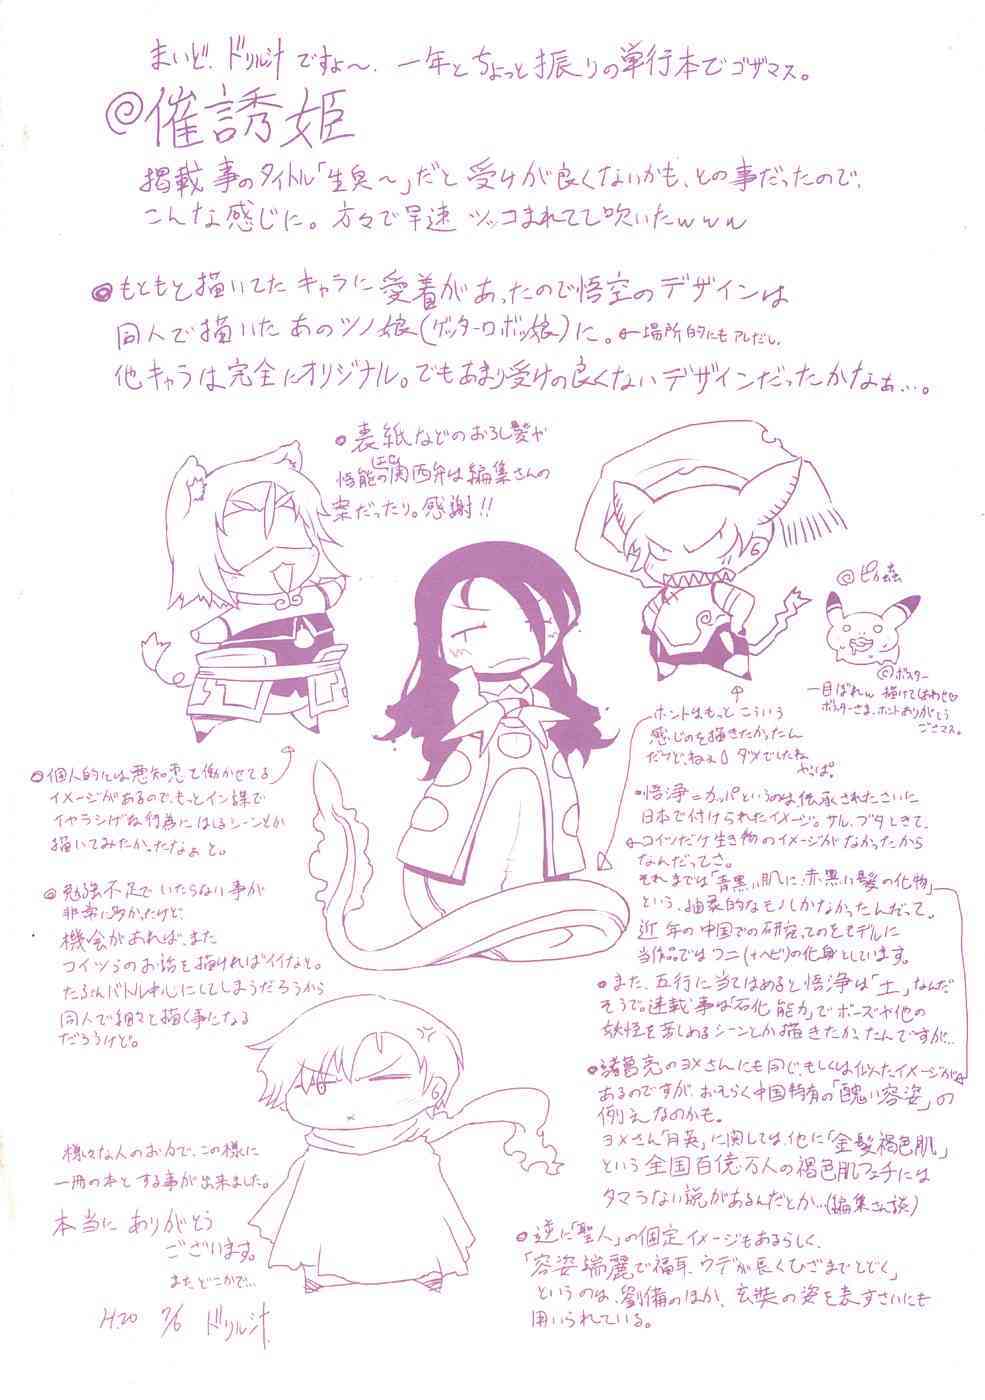 まいど、ドリル汁ですよ～、一年とちょっと振りの単行本でゴザマス。
@催誘姫
掲載事のタイトル「生臭～」だと受けが良くないかも、との事だったので、
こんな感じに。方々で早速ツッコまれてて吹いたwww
◎もともと描いてたキャラに愛着があったので悟空のデザインは
同人で描いたあのツノ娘(ゲッターロボッ娘)に。←場所的にもアレだし、
他キャラは完全にオリジナル。でもあまり受けの良くないデザインだったかなぁ…。
◎表紙などのおろし髪や
性能の(エセ)関西弁は編集さんの
案だったり。感謝!!
@ピカ
@ポスター
一目ぼれw 描けてしあわせ♡
ポスターさま、ホントありがとう
ござマス。
ホントはもっとこういう
感じのを描きたかったん
だけど、ねぇ。ダメでしたね
やっぱ。
◎個人的には悪知恵で働かせてる
イメージがあるので、もっとイン謀で
イヤラシげな行為にはしるシーンとか
描いてみたかったなぁと。
・悟浄＝カッパというのは伝承されたさいに
日本で付けられたイメージ。サル、ブタときて、
←コイツだけ生き物のイメージがなかったから
なんだってさ。
それまでは「青黒い肌に、赤黒い髪の化物」
という、抽象的なモノしかなかったんだって。
近年の中国での研究、でのをモデルに
当作品ではワニ(+ヘビ)の化身としています。
◎勉強不足でいたらない事が
非常に多かったけど、
機会があれば、また
コイツらのお話を描ければイイなと。
たぶんバトル中心にしてしまうだろうから
同人で細々と描く事になる
だろうけど。
◎また、五行に当てはめると悟浄は「土」なんだ
そうで。連載事は石化能力でボーズや他の
妖怪を苦しめるシーンとか描きたかったんですが…
◎諸葛亮のヨメさんにも同じ、もしくは似たイメージが
あるのですが、おそらく中国特有の「醜い容姿」の
例えなのかも。
ヨメさん「月英」に関しては、他に「金髪褐色肌」
という全国百億万人の褐色肌フェチには
タマラない説があるんだとか…(編集さん談)
様々な人のお力で、この様に
一冊の本とする事が出来ました。
本当にありがとう
ございます。
また、どこかで…
H.20 7/6 ドリル汁
◎逆に「聖人」の固定イメージもあるらしく、
「容姿端麗で福耳、ウデが長くひざまでとどく」
というのは、劉備のほか、玄奘の姿を表すさいにも
用いられている。